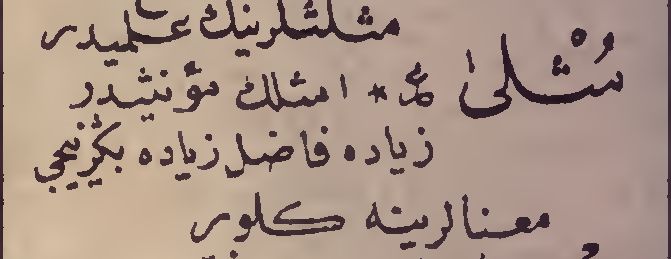 مثلثلرينك علميدر
مُثْلىٰ * امثلك مؤنثيدر
زياده فاضل زياده بڭزييجى
معنالرينه كلور